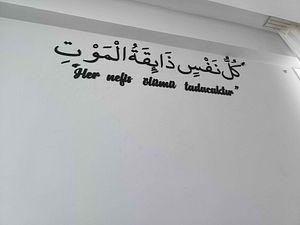 كُلُّ نَفْسٍ ذَايِقَةُ الْمَوْتِ
"Her nefis ölümü tadacaktır"